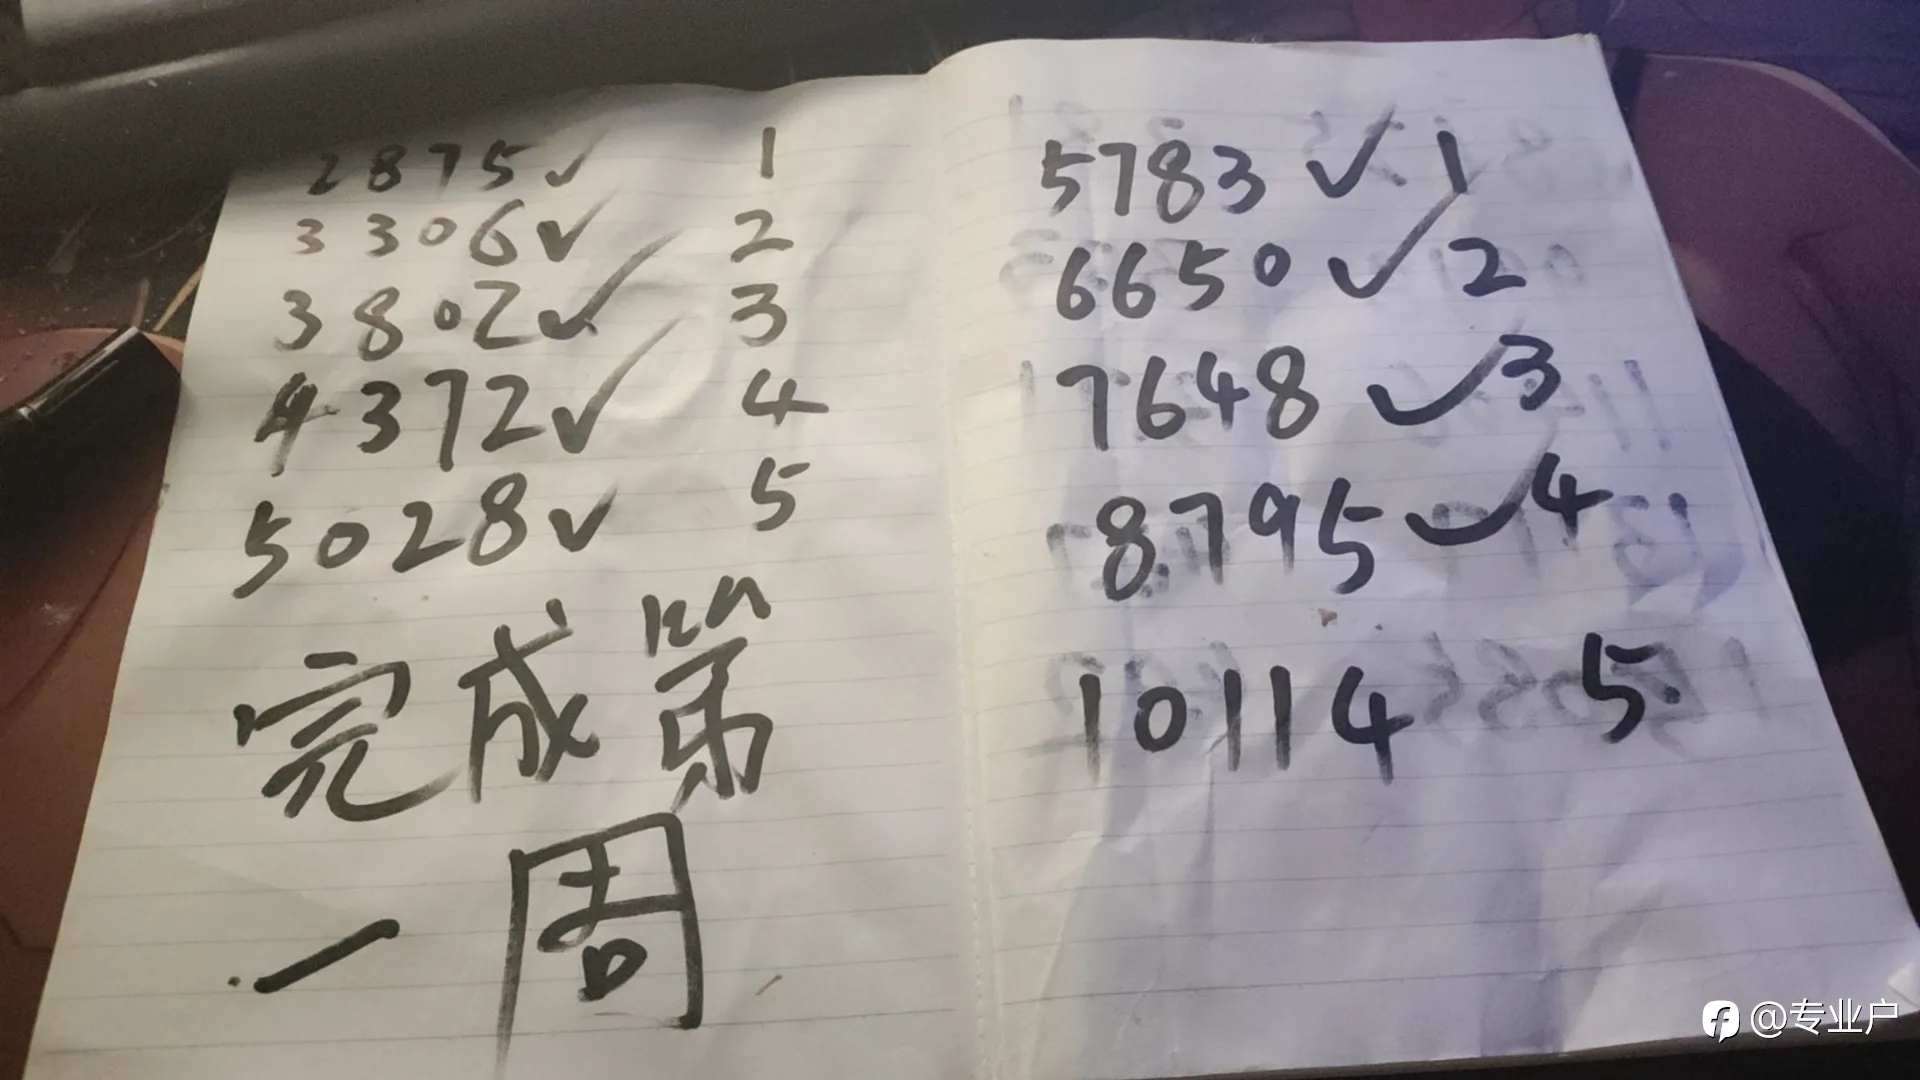 2875✓ 1
3306✓ 2
3802✓ 3
4372✓ 4
5028✓ 5
完成第
一周
5783✓ 1
6650✓ 2
7648✓ 3
8795✓ 4
10114 5
@专业户